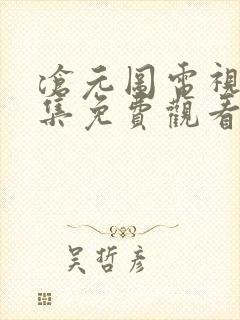 滄元圖電視
集免費觀看
吴哲彦